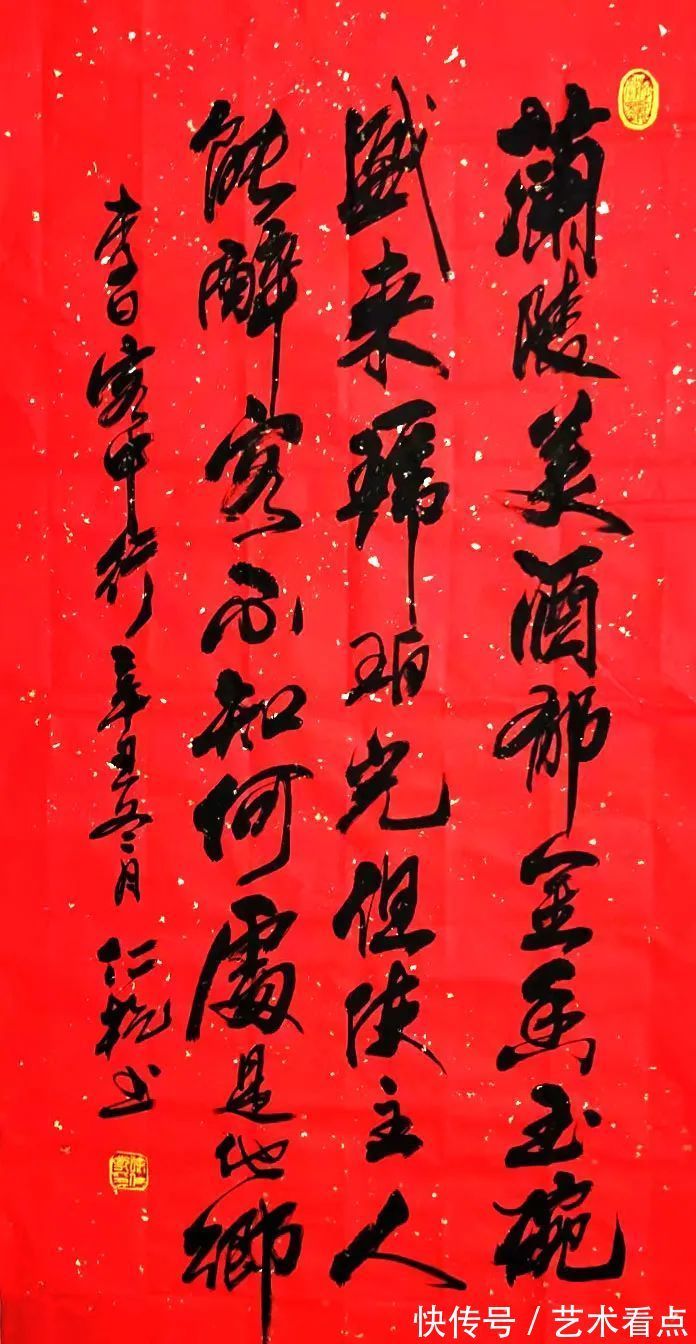 蘭陵美酒郁金香玉碗
盛来琥珀光但使主人
能醉客不知何處是他鄉
李白客中行 辛丑 二月 仁 书
快传号 / 艺术看点